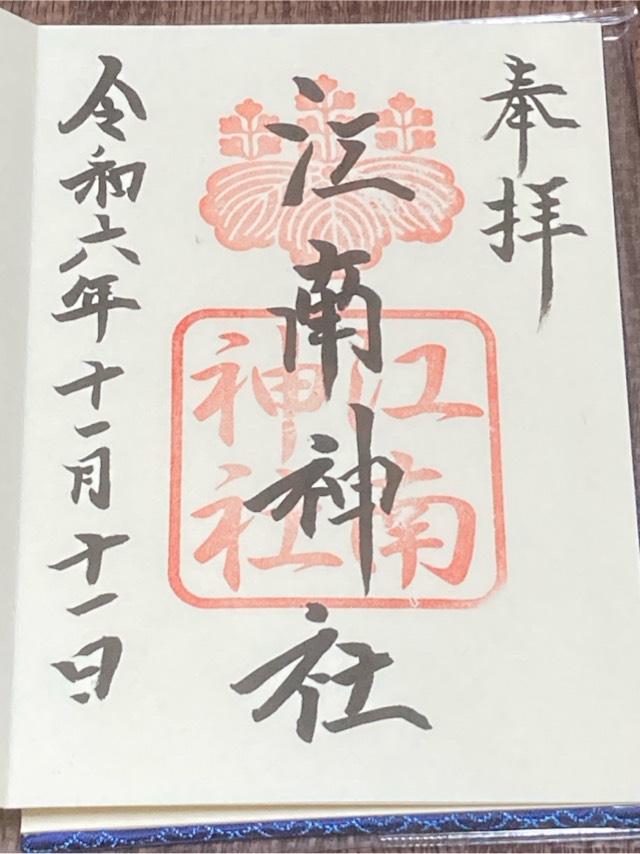 奉拝
江南神社
江南
神社
令和六年十一月十一日